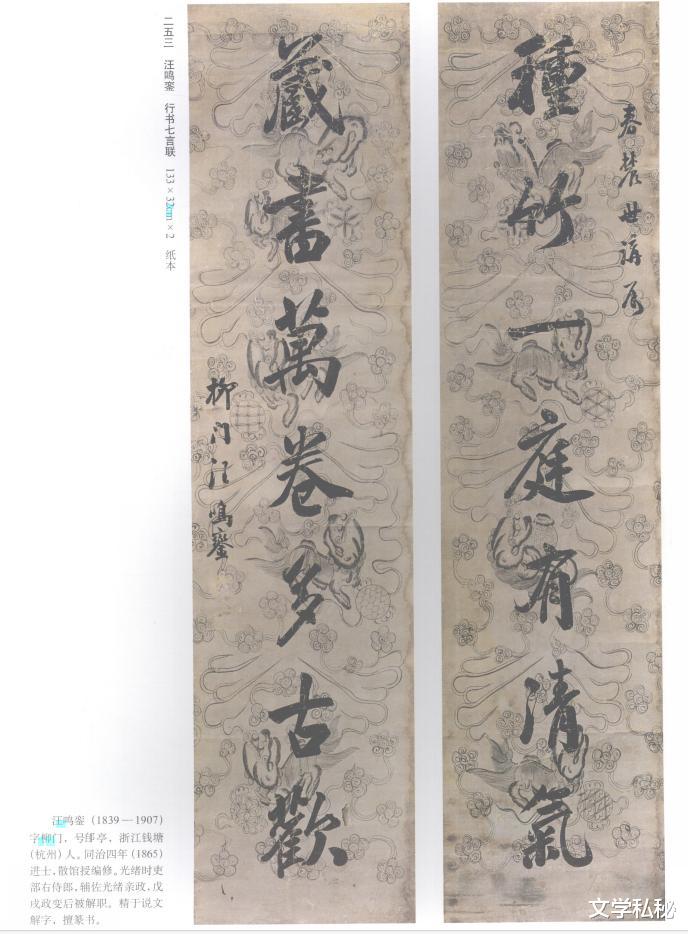 二五三 汪鸣銮 行书七言联 133×32cm×2 纸本
春麓世講屬
種竹一庭有清氣
藏書萬卷多古歡
柳门汪鳴鑾
汪鸣銮（1839—1907）
字柳门，号郋亭，浙江钱塘
（杭州）人。同治四年（1865）
进士，散馆授编修。光绪时吏
部右侍郎，辅佐光绪亲政，戊
戌政变后被解职。精于说文
解字，擅篆书。
文学私秘